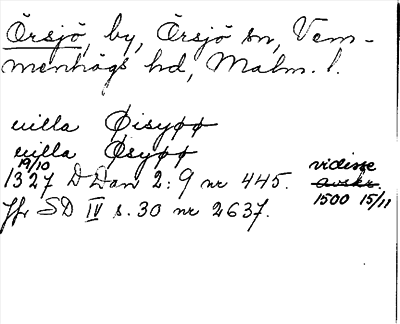 Örsjö, by, Örsjö sn, Vem-
menhögs hd, Malm. l.
uilla Øisyøø
uilla Øsyøø
19/10
1327 D Dan 2: 9 nr 445. vidisse
avskr.
1500 15/11
Jfr SD IV s. 30 nr 2637.